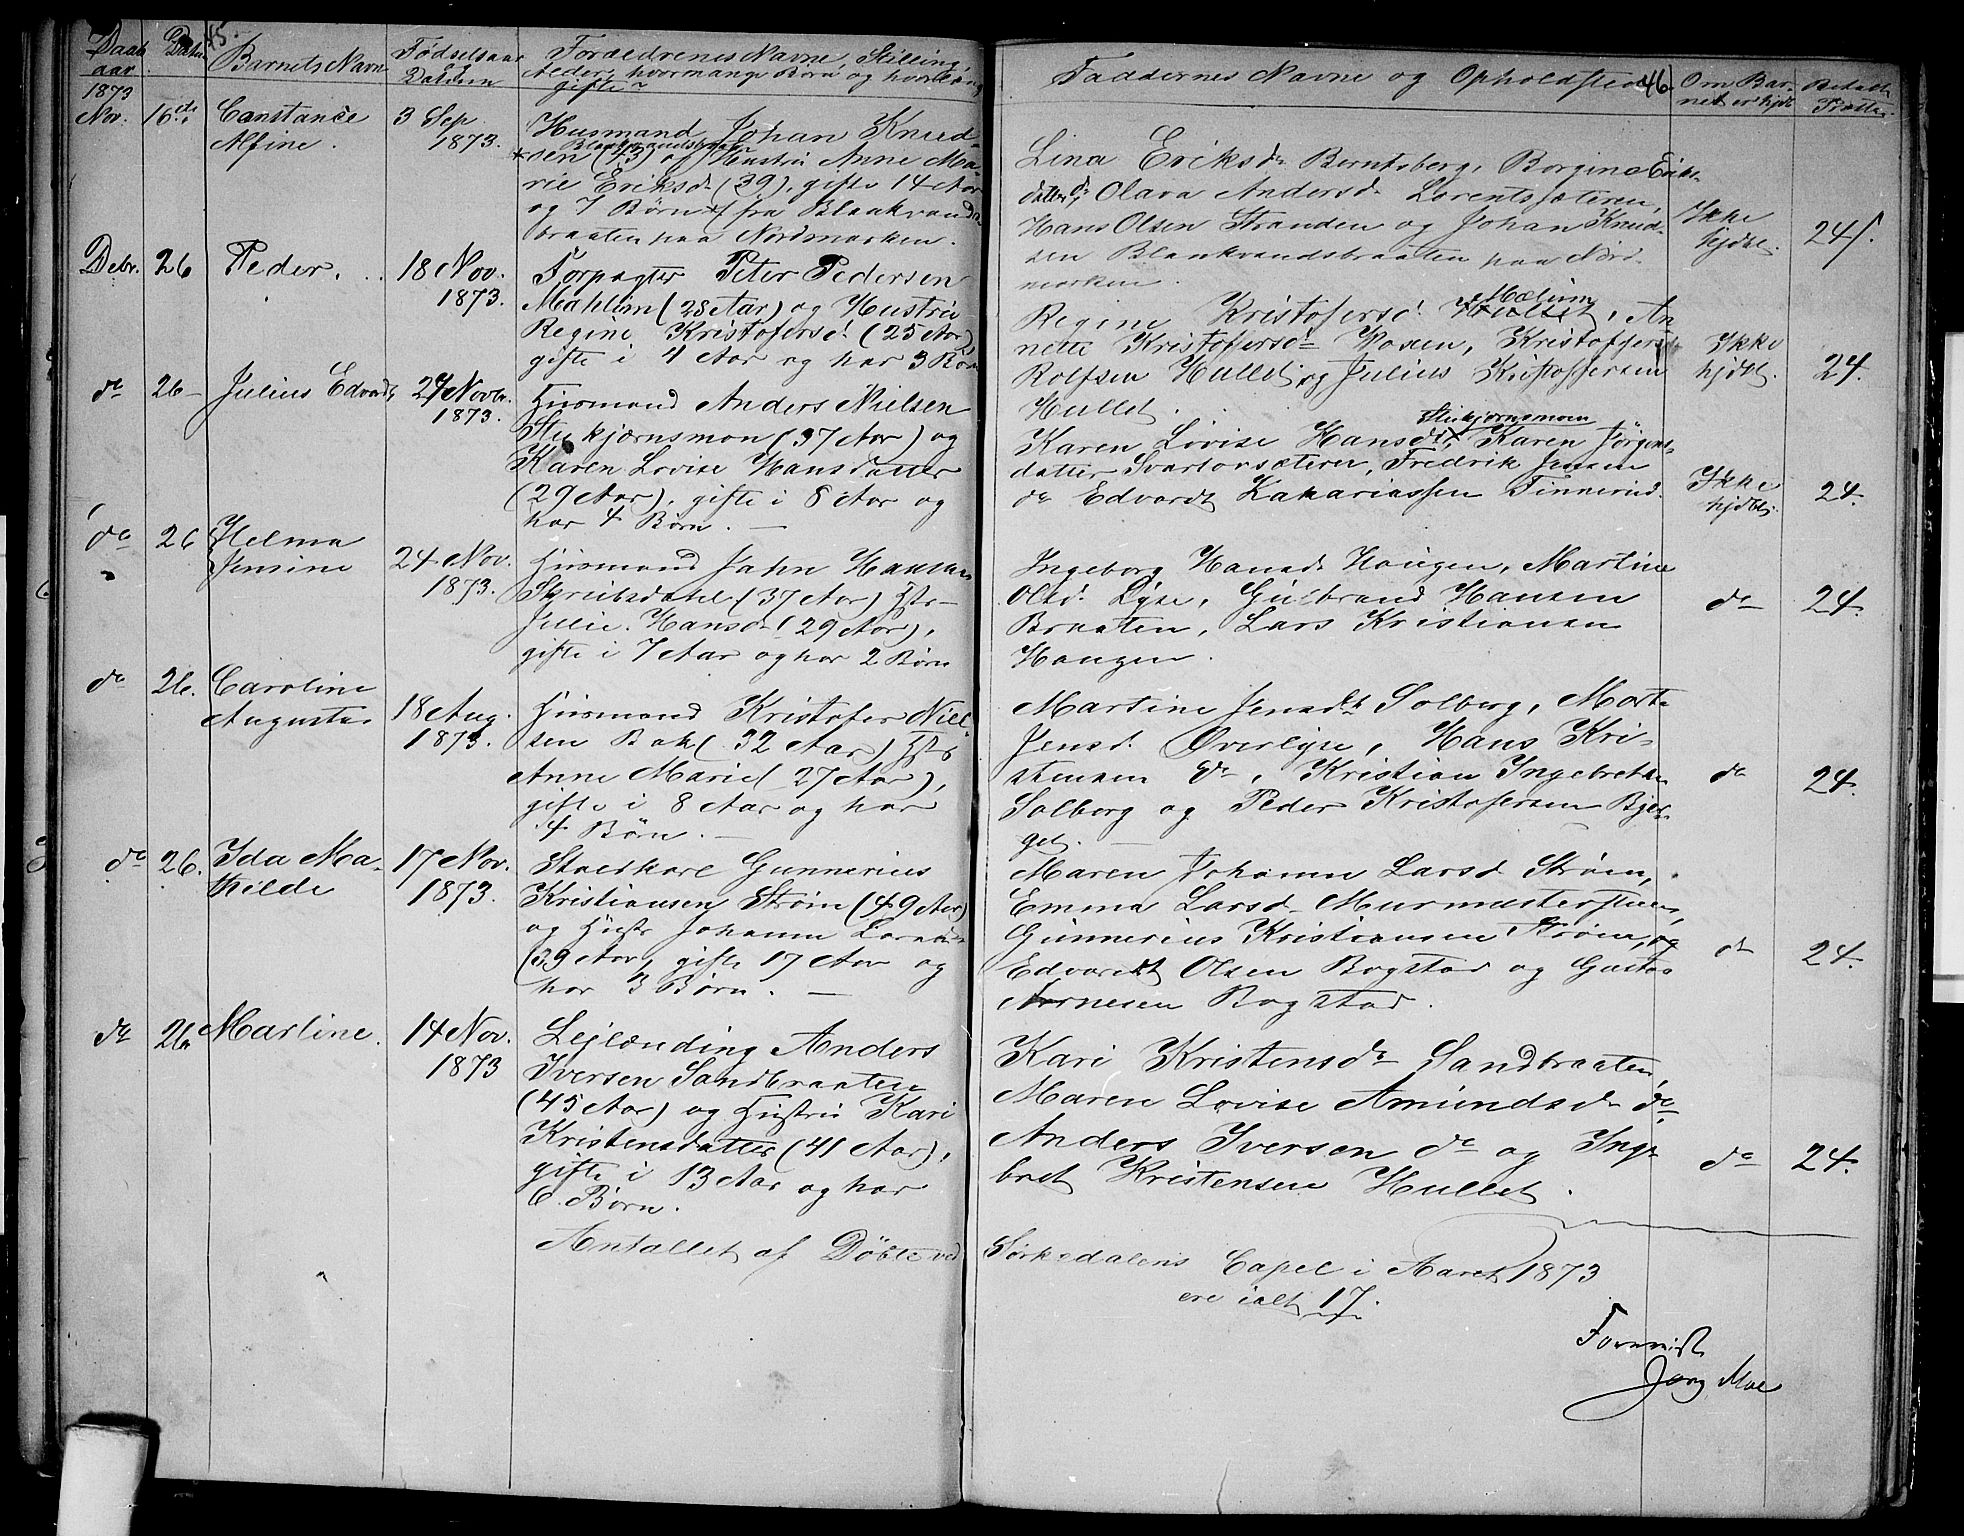 45.
Daab
aar
Datum
Barnets Navn
Fødselsaar
og
Datum
Forældrenes Navne, Stilling,
Alder, hvormange Børn og hvorlænge
gifte?
1873
Nov. 16de Constance
Alfine.
3 Sep.
1873.
Husmand Johan Knud-
Blankvandsbraaten
*sen (43) og Hustru Anne Ma-
rie Eriksd. (39), gifte 14 Aar
og 7 Børn fra Blankvands-
braaten paa Nordmarken.
Debr. 26 Peder.
18 Nov.
1873.
Forpagter Peter Pedersen
Mahlum (28 Aar) og Hustru
Regine Kristofersd. (25 Aar),
gifte i 4 Aar og har 3 Børn
do 26 Julius Edvardt
27 Novbr.
1873.
Husmand Anders Nielsen
Stukjernsmon (37 Aar) og
Karen Lovise Hansdatter
(29 Aar), gifte i 8 Aar og
har 4 Børn. —
do 26 Helma
Jensine
24 Nov.
1873.
Husmand John Hansen
Skriubsdahl (37 Aar) Hstr
Julie Hansd. (29 Aar),
gifte i 7 Aar og har 2 Børn
do 26. Caroline
Augusta
18 Aug.
1873.
Husmand Kristofer Niel-
sen Bak (32 Aar) Hstr
Anne Marie (27 Aar),
gifte i 8 Aar og har
4 Børn. —
do 26. Ida Ma-
thilde
17 Nov.
1873.
Staldkarl Gunnerius
Kristiansen Strøm (49 Aar)
og Hustr Johanne Larsd.
(39 Aar, gifte 17 Aar og
har 3 Børn. —
do 26 Martine.
14 Nov.
1873
Lejlænding Anders
Iversen Sandbraaten
(45 Aar) og Hustru Kari
Kristensdatter (41 Aar),
gifte i 13 Aar og har
6 Børn.
Antallet af Døbte ved
Faddernes Navne og Opholdsted
46
Om Bar-
net er hjdt
Betalt
Lina Eriksd. Berntsberg, Borgine Eriks-
datter do, Olava Andersd. Lorentsæteren,
Hans Olsen Stranden og Johan Knud-
sen Blankvandsbraaten paa Nord-
marken.
Ikke
hjdt.
24ſ.
Mælum
Regine Kristofersd. Hullet, An-
nette Kristofersd. Mosen, Kristoffer
Rolfsen Hullet og Julius Kristoffersen
Hullet.
Ikke
hjdt.
24.
Stukjernsmoen
Karen Lovise Hansd., Karen Jørgens-
datter Svartorsæteren, Fredrik Jensen
do Edvardt Zakariassen Finnerud.
Ikke
hjdt.
24.
Ingeborg Hansd. Haugen, Martine
Olsd. Lyse, Gulbrand Hansen
Braaten, Lars Kristiansen
Haugen.
do
24.
Martine Jensdt Solberg, Marte
Jensd. Øverlyse, Hans Kri-
stensen do, Kristian Ingebretsen
Solberg og Peder Kristofersen Bjer-
get. —
do
24.
Maren Johanne Larsd. Strøm,
Emma Larsd. Murmesterstuen,
Gunnerius Kristiansen Strøm, og
Edvardt Olsen Bogstad og Gustav
Arnesen Bogstad.
do
24.
Kari Kristensd. Sandbraaten,
Maren Lovise Amundsd. do,
Anders Iversen do og Inge-
bret Kristensen Hullet.
do
24.
Sørkedalens Capel i Aaret 1873
ere ialt 17.
Jørg. Moe